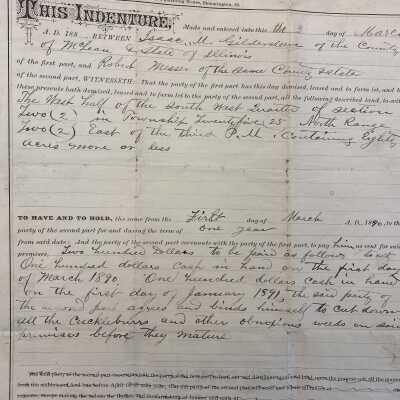 THIS INDENTURE, Made and entered into this the day of March
A. D. 188 BETWEEN Isaac M. Gildersleeve of the County
of McLean & State of Illinois
of the first part, and Robert Messer of the same County & State
of the second part, WITNESSETH: That the party of the first part has this day demised, leased and to farm let, and by
these presents doth demised, leased and to farm let to the party of the second part, all the following described land, to-wit
The West half of the South West Quarter of Section
Two (2) in Township Twentyfive 25 North Range
Two (2) East of the third P.M. Containing Eighty
acres more or less
TO HAVE AND TO HOLD, the same from the First day of March A. D. 1890, to the
party of the second part for and during the term of one year
from said date; And the party of the second part covenants with the party of the first part, to pay him as rent for said
premises, Two hundred Dollars to be paid as follows to wit
One hundred dollars cash in hand on the first day
of March 1890. One hundred dollars cash in hand
on the first day of January 1891, the said party of
the second part agrees and binds himself to cut down
all the Cuckleburrs and other obnoxious weeds on said
premises before they mature